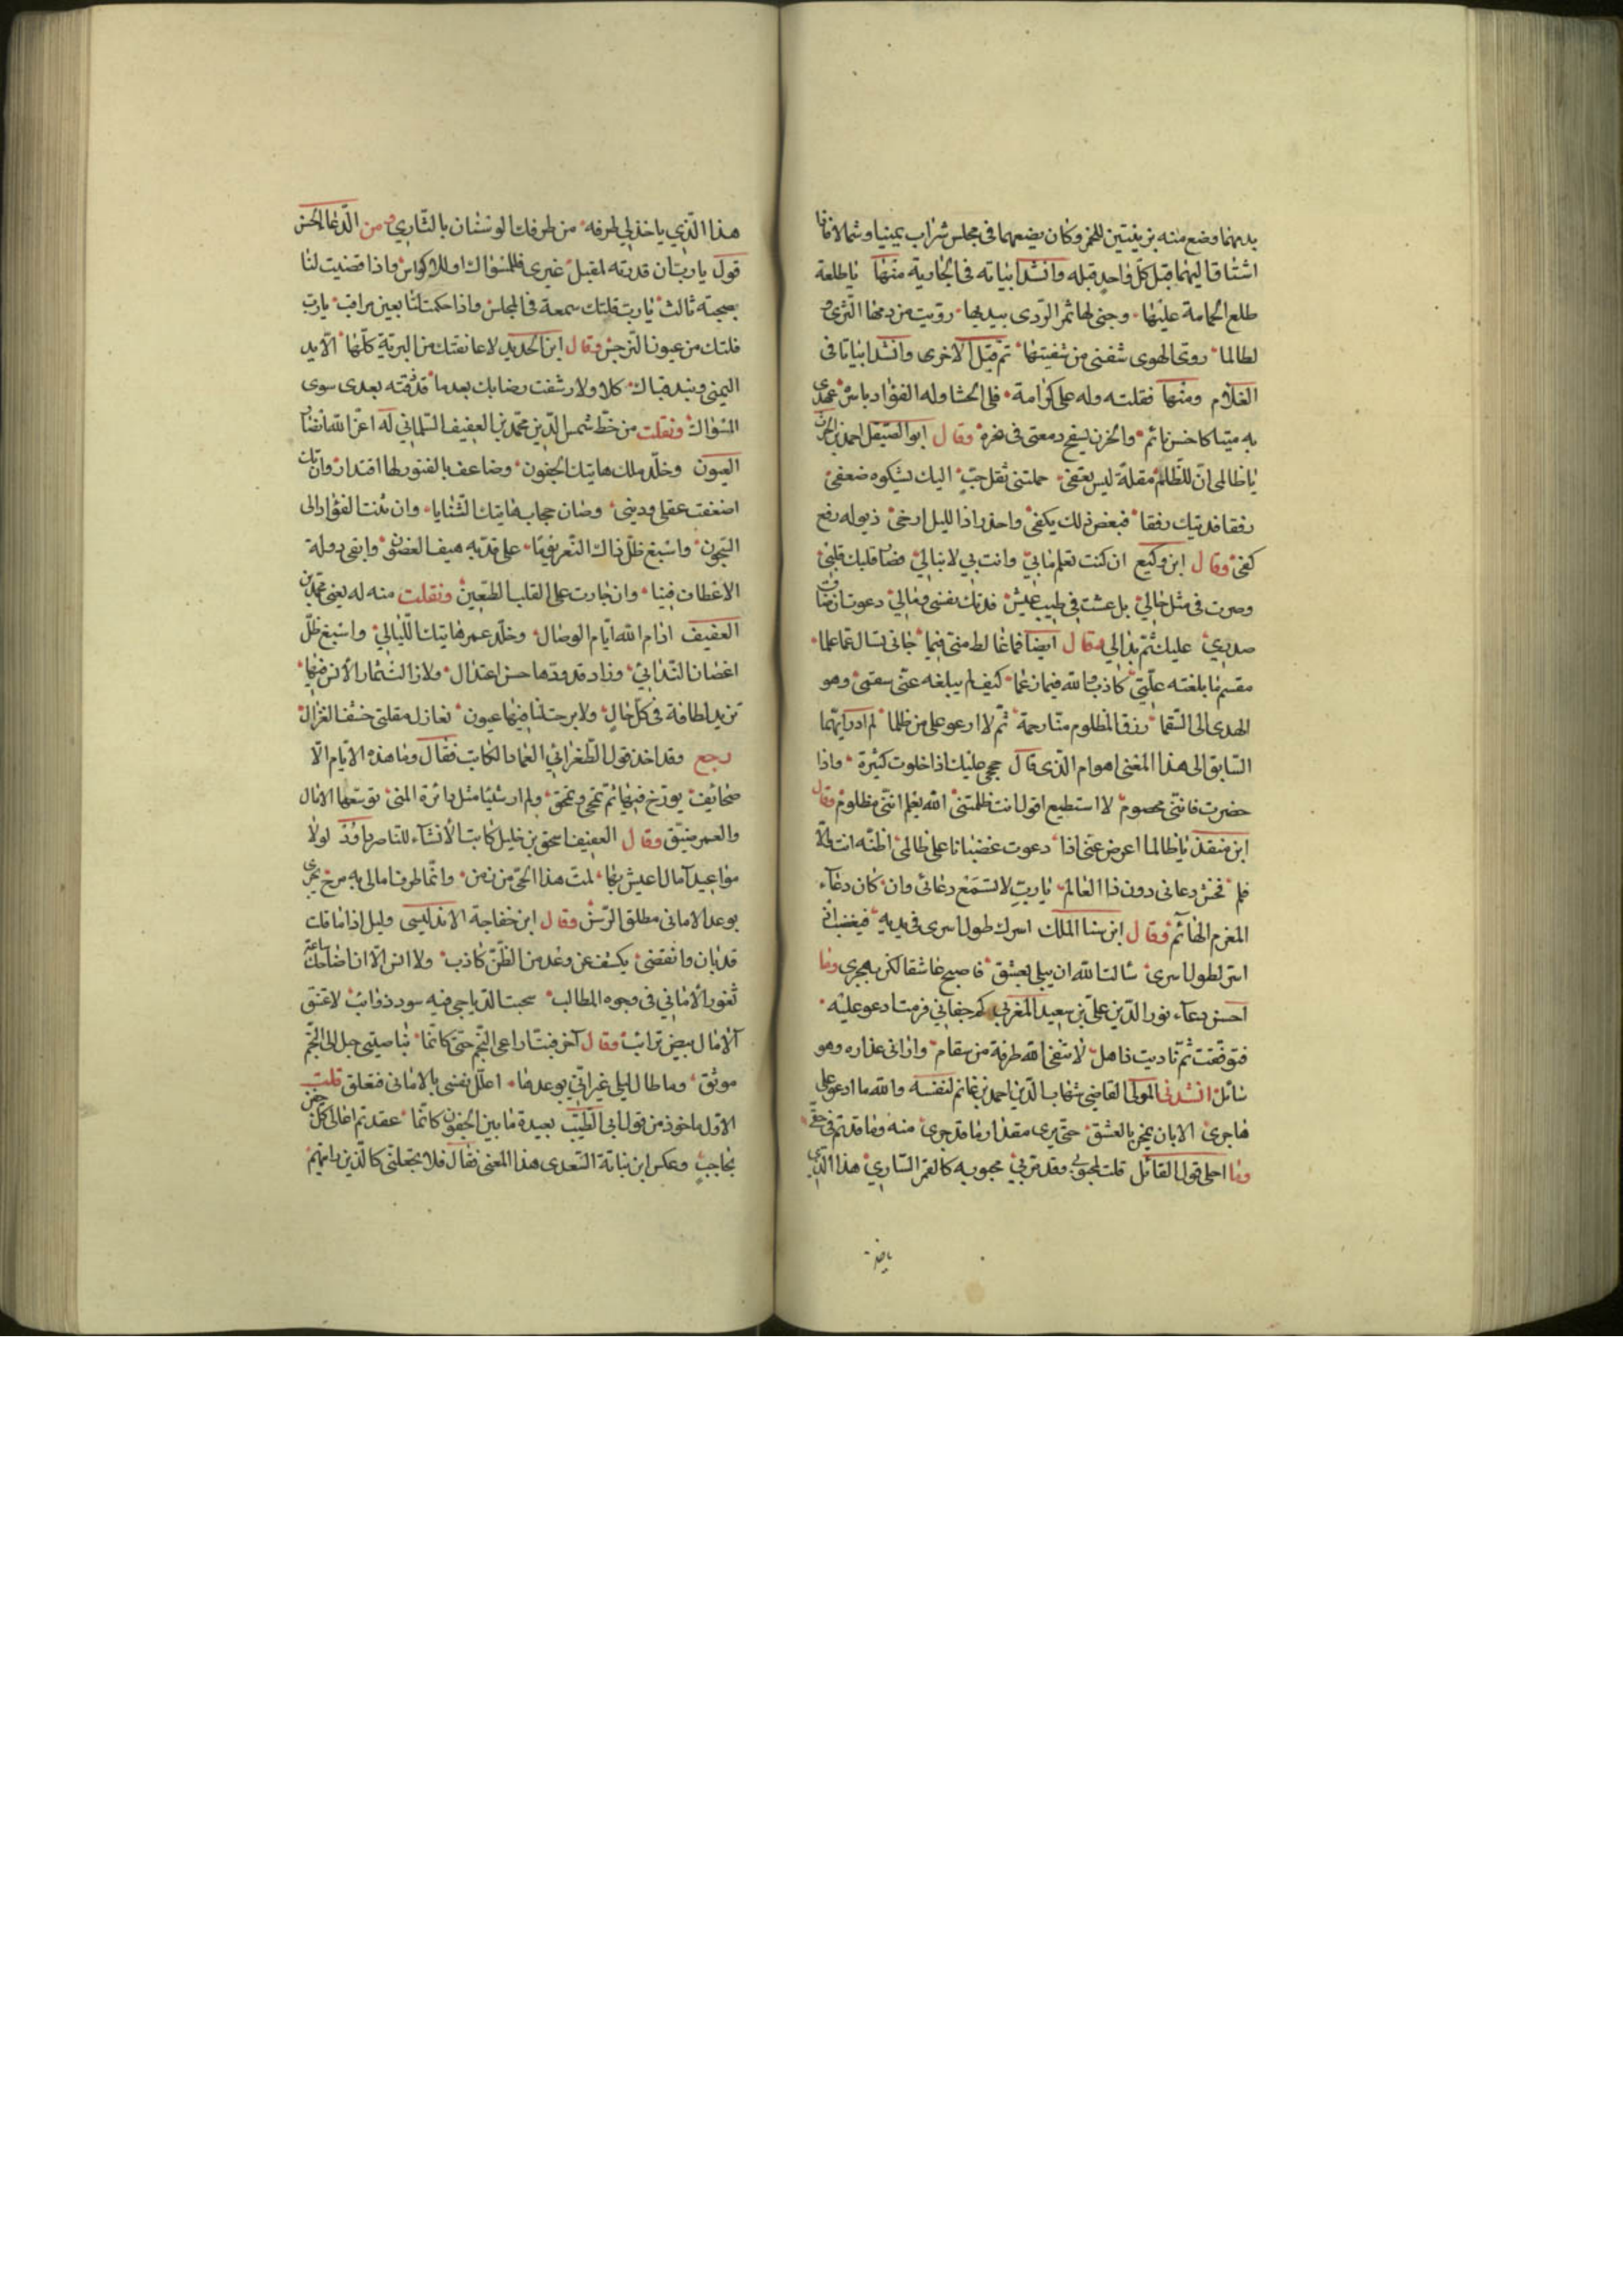 بدمهما وضع منه بزينتين للخمر وكان يضعهما فى مجلس شراب يمينا وشمالا فاذا
اشتاق اليهما قبل كل واحد قبله وانشد ابياته فى الجارية منها يا طلعة
طلع الحمامة عليها وجنى لها ثمر الردى بيديها رويت من دمها الثرى و
لطالما روى الهوى شفتى من شفتيها ثم قبل الاخرى وانشد ابياتا فى
الغلام ومنها فقلته وله على كرامة فلى الحشا وله الفؤاد باسره عهدى
به ميتا كاحسن نائم والحزن يسفح دمعتى فى نحره وقال ابو الصيقل احمد بن
يا ظالمى ان للظالم مقلة ليس يعفى حملتنى ثقل حب اليك يشكوه ضعفى
رفقا فديتك رفقا فبعض ذلك يكفى واحذر اذا الليل ارخى ذيوله رفع
كفى وقال ابن وكيع ان كنت تعلم ما بى وانت بى لا تبالى فصار قلبك قلبى
وصرت فى مثل حالى بل عشت فى طيب عيش فدتك نفسى ومالى دعوت اذ ضاق
صدرى عليك ثم بدا لى وقال ايضا فما غالط منى فيما جانى تسال عما علما
مقسم ما بلغته علتى كاذب والله فيما زعما كيف لم يبلغه عنى سقمى وهو
الهدى الى السقما رزق المظلوم منا رحمة ثم لا ادعو على من ظلما لم ادر ايهما
السابق الى هذا المعنى اهو ام الذى قال حججى عليك اذا خلوت كثيرة واذا
حضرت فاننى مخصوم لا استطيع اقول انت ظلمتنى الله يعلم اننى مظلوم وقال
ابن منقذ يا ظالما اعرض عنى اذا دعوت غضبانا على ظالمى اظنه انت والا
فلم تخش دعائى دون ذا العالم يا رب لا تسمع دعائى وان كان دعاء
المغرم الهائم وقال ابن سنا الملك اسرك طول اسرى فى يديه فيغضبنى
اسر لطول اسرى سالت الله ان يبلى بعشق فاصبح عاشقا لكن بهجرى وما
احسن دعاء نور الدين على بن سعيد المغربى كم جفانى فرمت ادعو عليه
فتوقفت ثم ناديت ذاهل لا شفى الله طرفه من سقام وارانى عذاره وهو
سائل انشدنى المولى القاضى شهاب الدين احمد بن غانم لنفسه والله ما ادعو على
هاجرى الا بان يمحن بالعشق حتى يرى مقدار ما قد جرى منه وما قد تم فى حقى
وما احلى قول القائل قلت لمحبوبى وقد مر بى محبوبه كالقمر السارى هذا الذى
ياخذ
هذا الذى ياخذ لى طرفه من طرفك الوسنان بالثارى ومن الدعا الحسن
قول يا رب ان قدرته لمقبل غيرى فللمسواك او للاكواس واذا قضيت لنا
بصحبة ثالث يا رب فليك سمعة فى المجلس واذا حكمت لنا بعين مراقب يا رب
فليك من عيون النرجس وقال ابن الحديد لا عانقتك من البرية كلها الا يد
اليمنى وبند قباك كلا ولا رشفت رضابك بعدما قد ذقته بعدى سوى
المسواك ونقلت من خط شمس الدين محمد بن العفيف التلمسانى له اعز الله انصار
العيون وخلد ملك هاتيك الجفون وضاعف بالفتور لها اقتدارا وان تك
اضعفت عقلى ودينى وصان حجاب هاتيك الثنايا وان ثنت الفؤاد الى
الشجون واسبغ ظل ذاك الشعر يوما على قد به هيف الغصون وابقى دولة
الاعطاف فينا وان جارت على القلب الطعين ونقلت منه له يعنى محمد بن
العفيف ادام الله ايام الوصال وخلد عمر هاتيك الليالى واسبغ ظل
اغصان التدانى وزاد قدودها حسن اعتدال ولا زالت ثمار الانس فيها
تزيد لطافة فى كل حال ولا برحت لنا فيها عيون تغازل مقلتى خشف الغزال
رجع وقد اخذ قول الطغرائى العماد الكاتب فقال وما هذه الايام الا
صحائف يورخ فيها ثم تمحى وتمحق ولم ار شيئا مثل دائرة المنى توسعها الامال
والعمر ضيق وقال العفيف اسحق بن خليل كاتب الانشاء للناصر داود لولا
مواعيد آمال اعيش بها لمت هذا الحى من زمن وانما طرف امالى به مرح يجرى
بوعد الامانى مطلق الرسن وقال ابن خفاجة الاندلسى وليل اذا ما قلت
قد بان وانقضى يكشف عن وعد من الظن كاذب ولا انس الا ان اضاحك ساعة
ثغور الامانى فى وجوه المطالب سحبت الدياجى فيه سود ذوائب لاعتنق
الامال بيض ترائب وقال آخر فبت اراعى النجم حتى كانما بناصيتى حبل الى النجم
موثق وما طال ليلى غير انى بوعدها اعلل نفسى بالامانى فتعلق قلت
الاول ماخوذ من قول ابى الطيب بعيدة ما بين الجفون كانما عقدتم اعالى كل جفن
بحاجب وعكس ابن نباتة السعدى هذا المعنى فقال فلا تجعلنى كالذين رايتهم